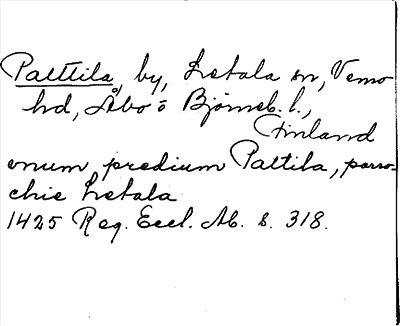 Palttila, by, Letala sn, Vemo
hd, Åbo o Björneb. l.,
Finland
unum predium Paltila, parro-
chie Letala
1425 Reg. Eccl. Ab. s. 318.